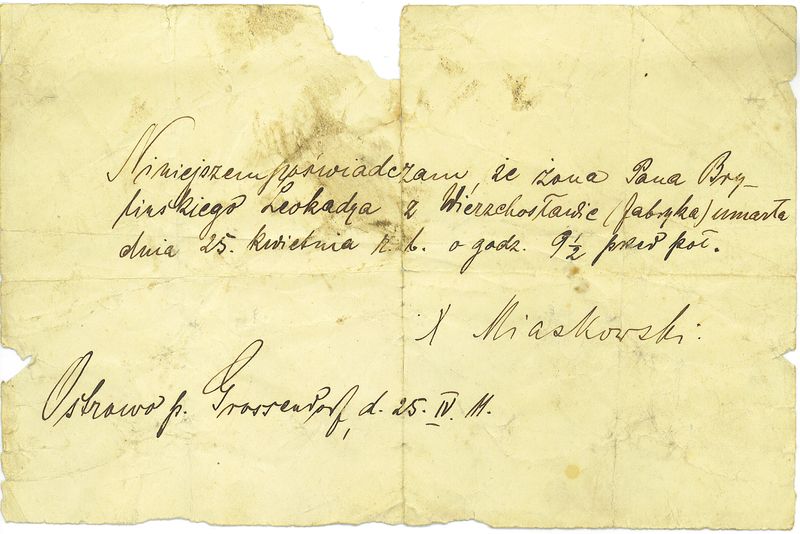 Niniejszem poświadczam że żona Pana Bry-
lińskiego Leokadya z Wierzchosławic (fabryka) umarła
dnia 25. kwietnia r. b. o godz. 9½ przed poł.
X Miaskowski.
Ostrowo p. Grossendorf, d. 25. IV. 11.